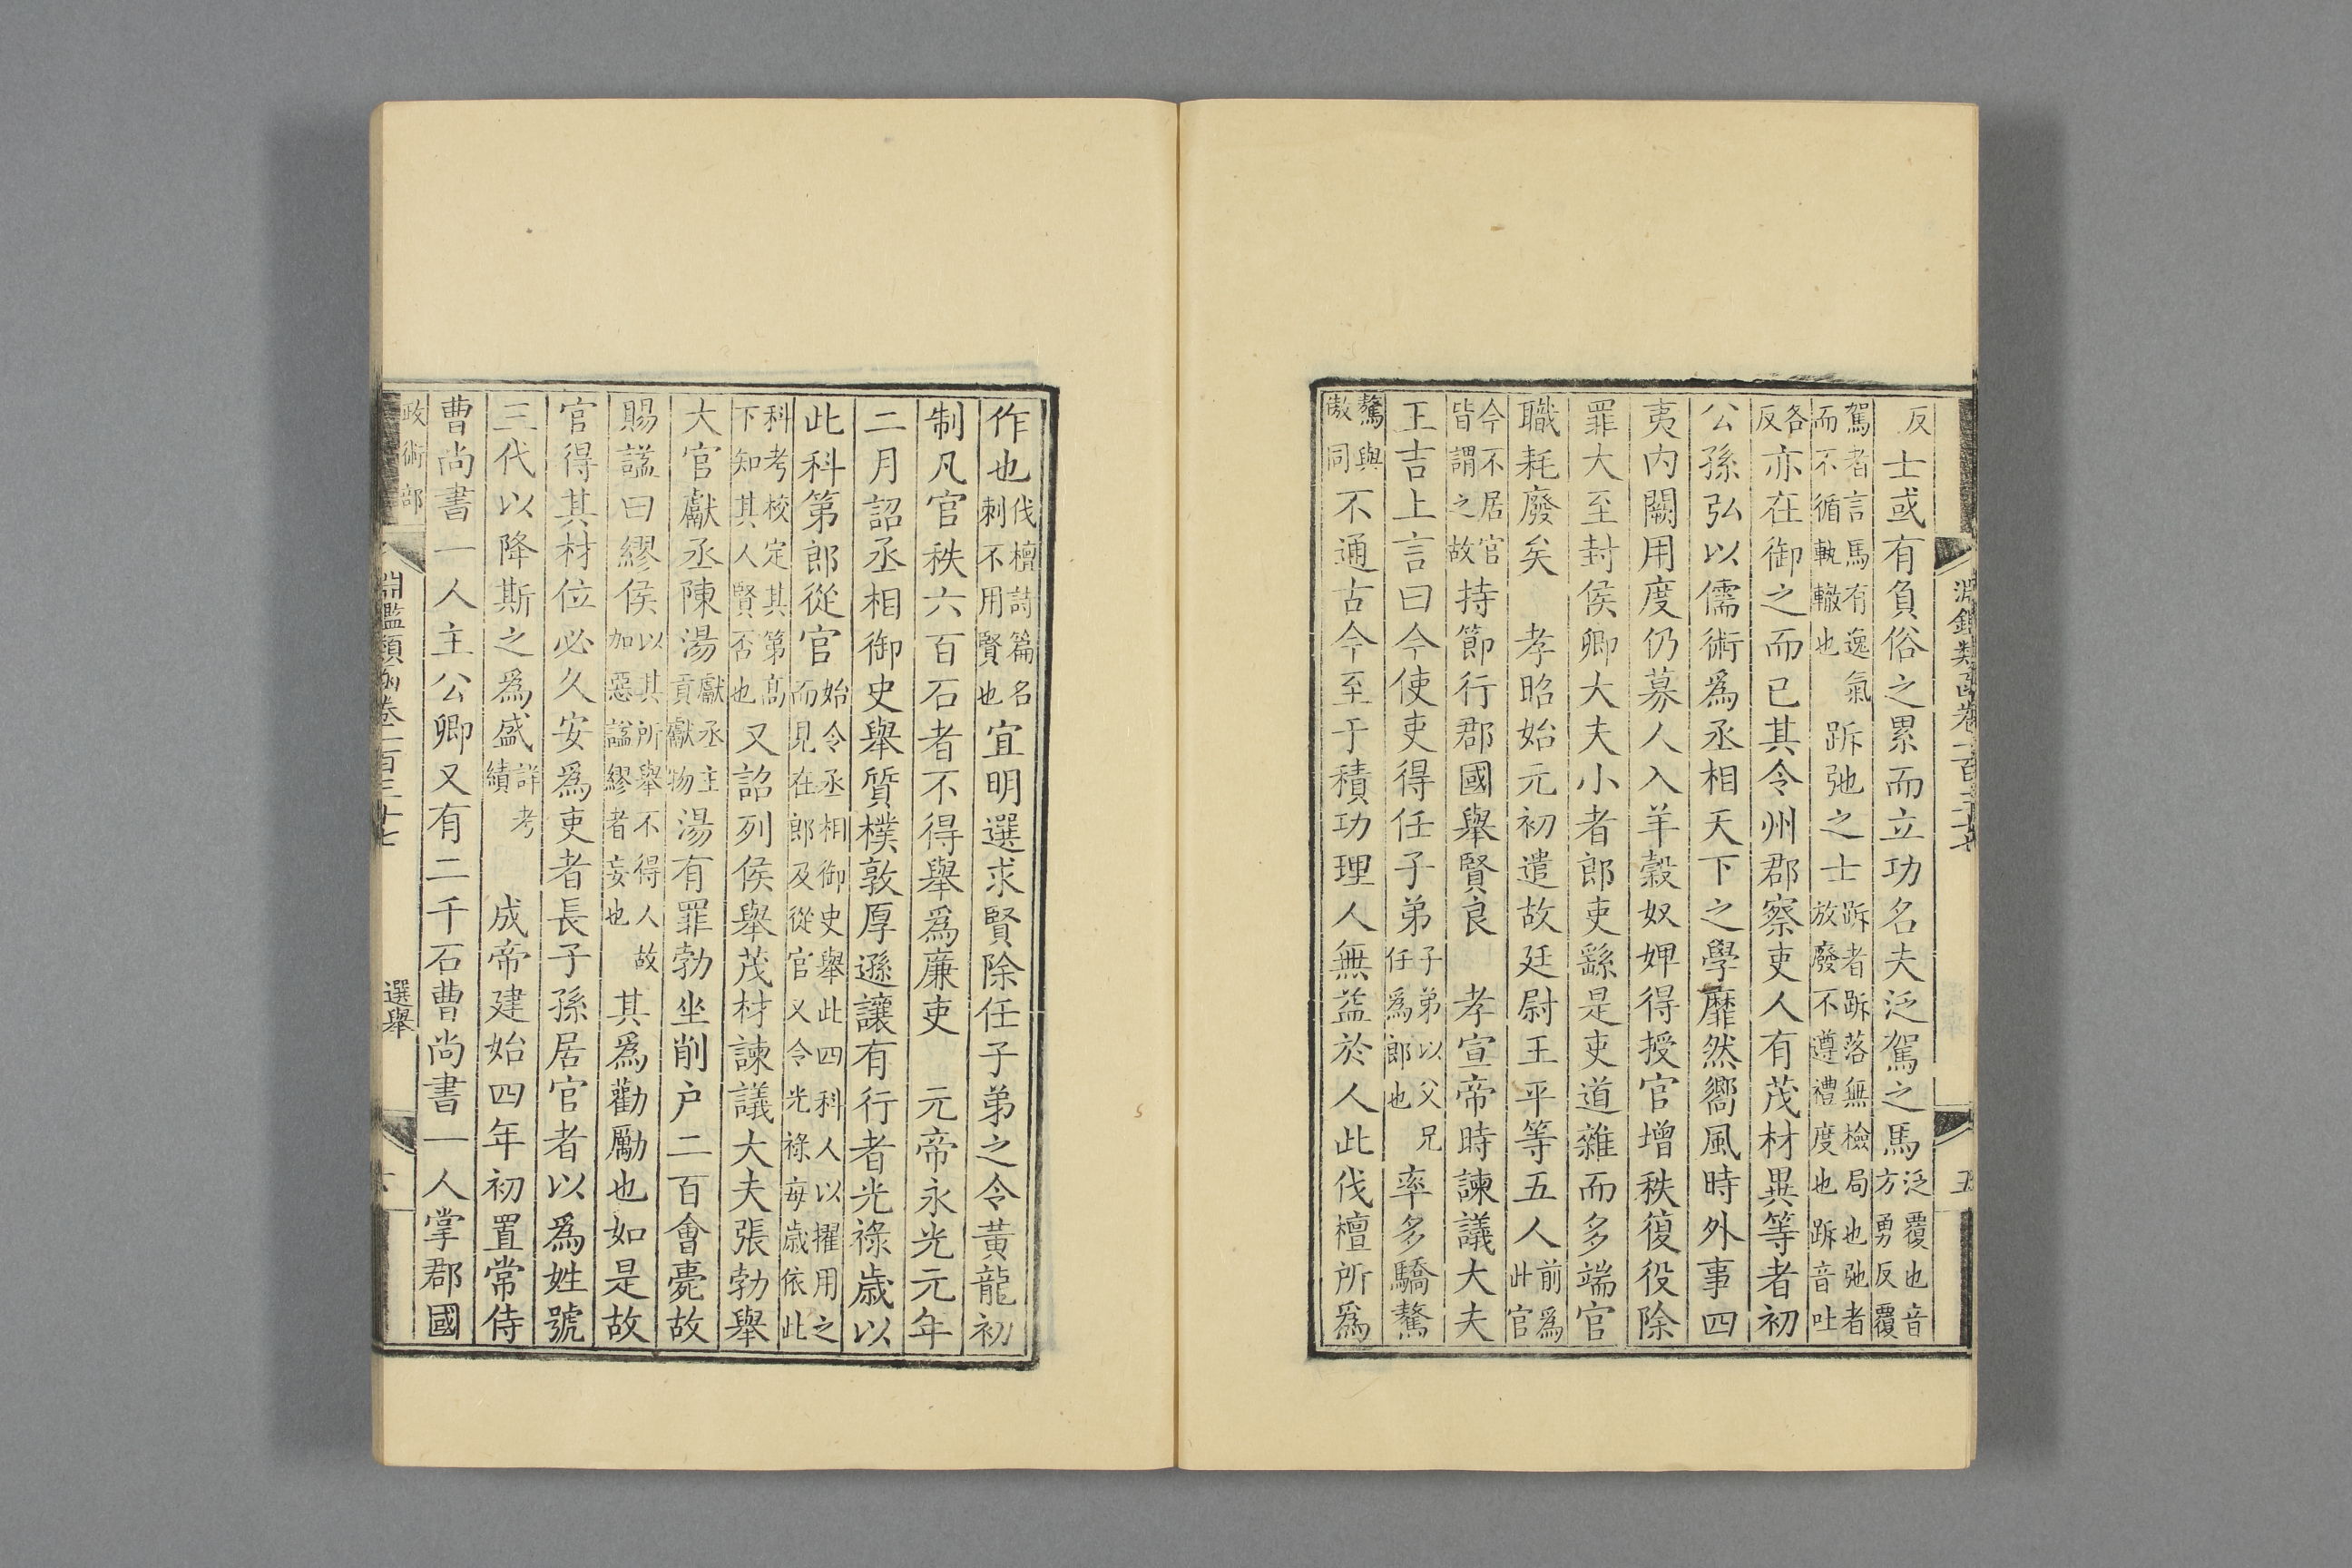 反士或有負俗之累而立功名夫泛駕之馬泛覆也音方勇反覆
駕者言馬有逸氣而不循軌轍也跅弛之士跅者跅落無檢局也弛者放廢不遵禮度也跅音吐
各反亦在御之而已其令州郡察吏人有茂材異等者初
公孫弘以儒術爲丞相天下之學靡然嚮風時外事四
夷內闕用度仍募人入羊穀奴婢得授官增秩復役除
罪大至封侯卿大夫小者郎吏繇是吏道雜而多端官
職耗廢矣　孝昭始元初遣故廷尉王平等五人前爲此官
今不居官皆謂之故持節行郡國舉賢良　孝宣帝時諫議大夫
王吉上言曰今使吏得任子弟子弟以父兄任爲郎也率多驕驁
驁與傲同不通古今至于積功理人無益於人此伐檀所爲
作也伐檀詩篇名刺不用賢也宜明選求賢除任子弟之令黃龍初
制凡官秩六百石者不得舉爲廉吏　元帝永光元年
二月詔丞相御史舉質樸敦厚遜讓有行者光祿歲以
此科第郎從官始令丞相御史舉此四科人以擢用之而見在郎及從官又令光祿每歲依此
科考校定其第高下知其人賢否也又詔列侯舉茂材諫議大夫張勃舉
大官獻丞陳湯獻丞主貢獻物湯有罪勃坐削户二百會薨故
賜諡曰繆侯以其所舉不得人故加惡諡繆者妄也其爲勸勵也如是故
官得其材位必久安爲吏者長子孫居官者以爲姓號
三代以降斯之爲盛詳考績　成帝建始四年初置常侍
曹尚書一人主公卿又有二千石曹尚書一人掌郡國
政術部
淵鑑類函卷一百三十七
選舉